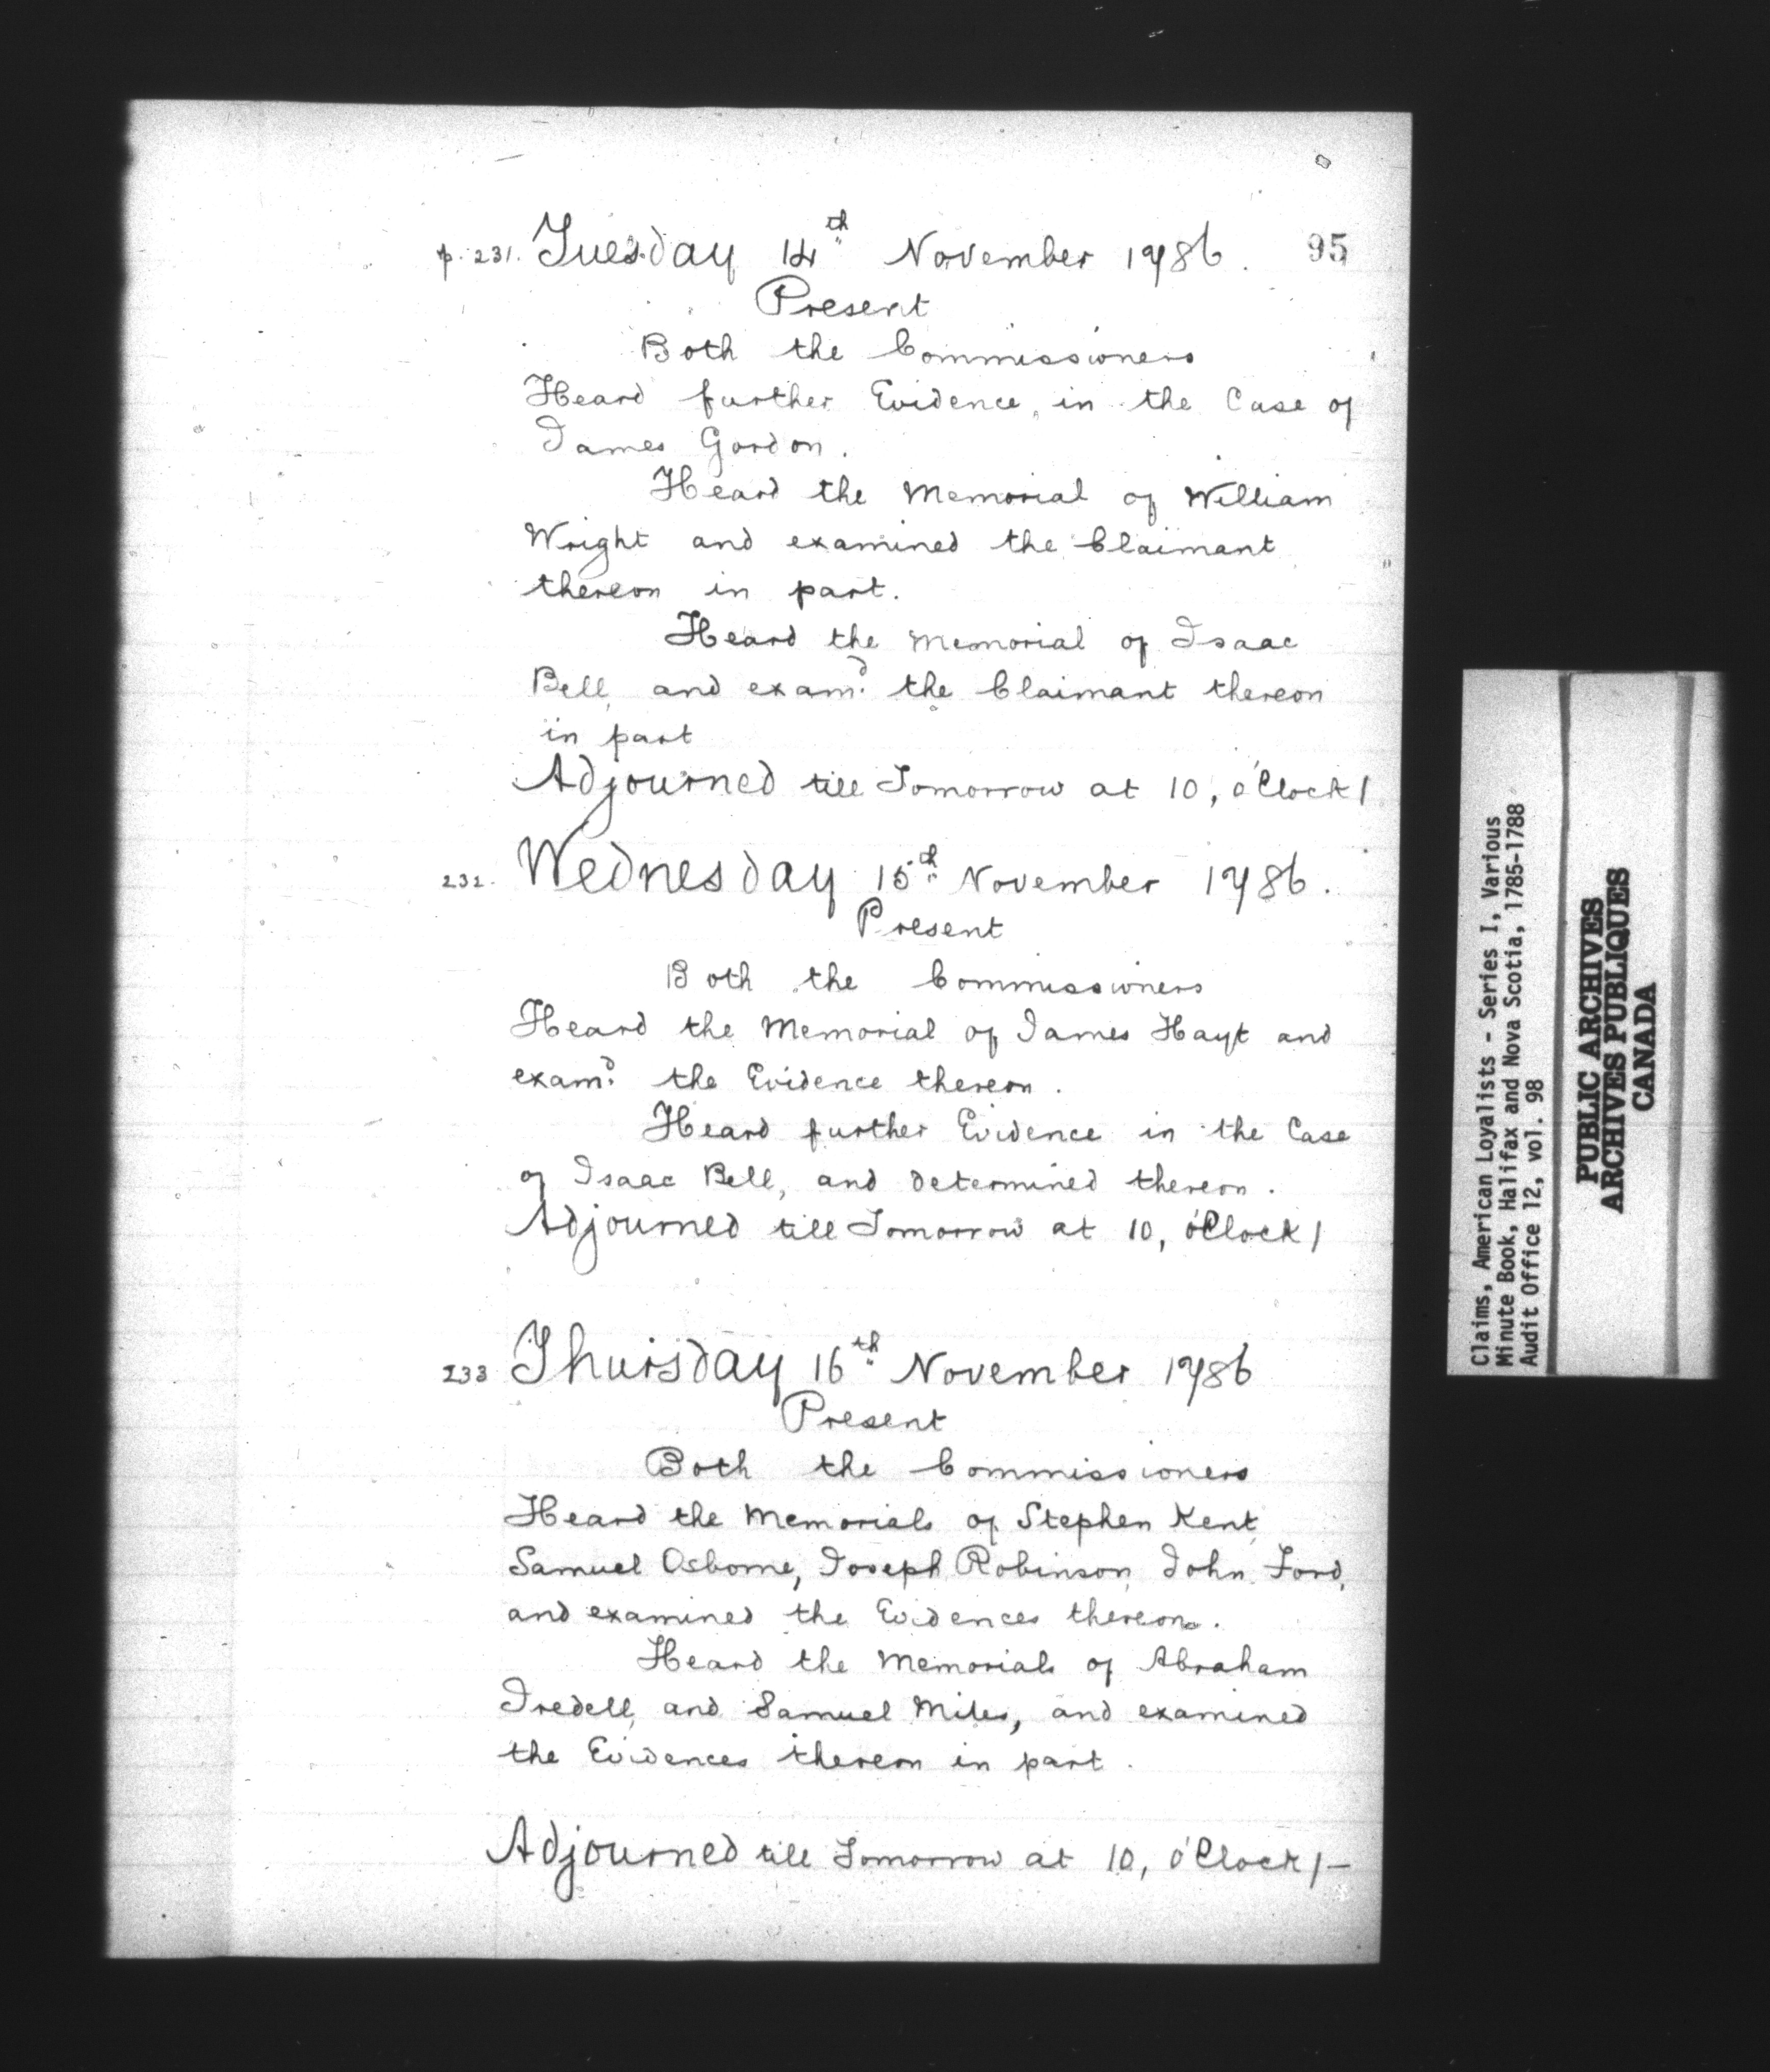 p. 231. Tuesday 14th November 1786. 95
Present
Both the Commissioners
Heard further Evidence in the Case of
James Gordon.
Heard the Memorial of William
Wright and examined the Claimant
thereon in part.
Heard the Memorial of Isaac
Bell, and examd the Claimant thereon
in part
Adjourned till Tomorrow at 10, o'Clock/
232. Wednesday 15th November 1786.
Present
Both the Commissioners
Heard the Memorial of James Hayt and
examd the Evidence thereon.
Heard further Evidence in the Case
of Isaac Bell, and determined thereon.
Adjourned till Tomorrow at 10, o'Clock/
233 Thursday 16th November 1786
Present
Both the Commissioners
Heard the Memorials of Stephen Kent,
Samuel Osborne, Joseph Robinson, John Ford,
and examined the Evidences thereon.
Heard the Memorials of Abraham
Iredell, and Samuel Miles, and examined
the Evidences thereon in part.
Adjourned till Tomorrow at 10, o'Clock/-
Claims, American Loyalists - Series I, Various
Minute Book, Halifax and Nova Scotia, 1785-1788
Audit Office 12, vol. 98
PUBLIC ARCHIVES
ARCHIVES PUBLIQUES
CANADA